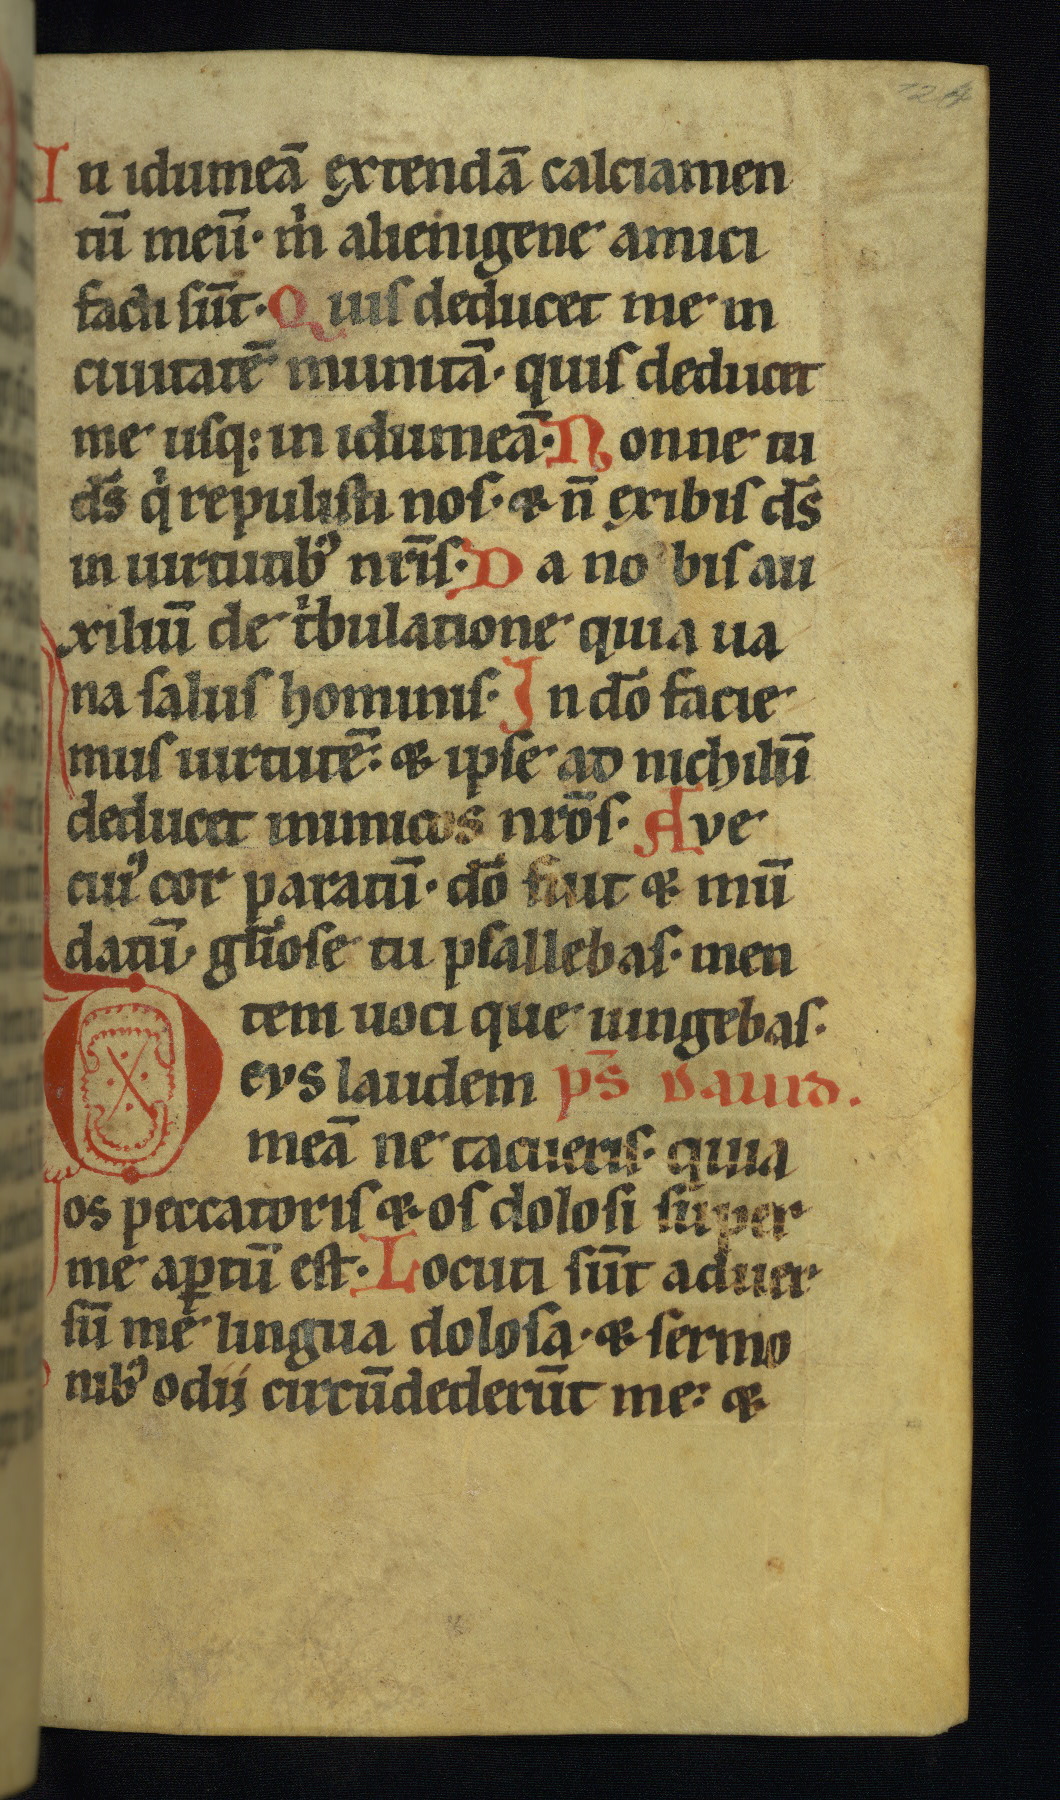 124
In idumeā extendā calciamen
tū meū· m̍ alienigene amici
facti sūt· Quis deducet me in
ciuitatē munitā· quis deducet
me usq; in idumeā· Nonne tu
ds̄ q̍ repulisti nos· & n̄ exibis ds̄
in uirtutib⁹ nr̄is· Da nobis au
xiliū de t̍bulatione quia ua
na salus hominis· In dō facie
mus uirtutē: & ipse ad nichilū
deducet inimicos nr̄os· Ave
cui⁹ cor paratū· dō fuit & mū
datū· gl̄iose tu psallebas· men
tem uoci que iungebas·
Deus laudem ps̄ dauid.
meā ne tacueris· quia
os peccatoris & os dolosi super
me aꝑtū est· Locuti sūt aduer
sū me lingua dolosa· & sermo
nib⁹ odii circūdederūt me: &